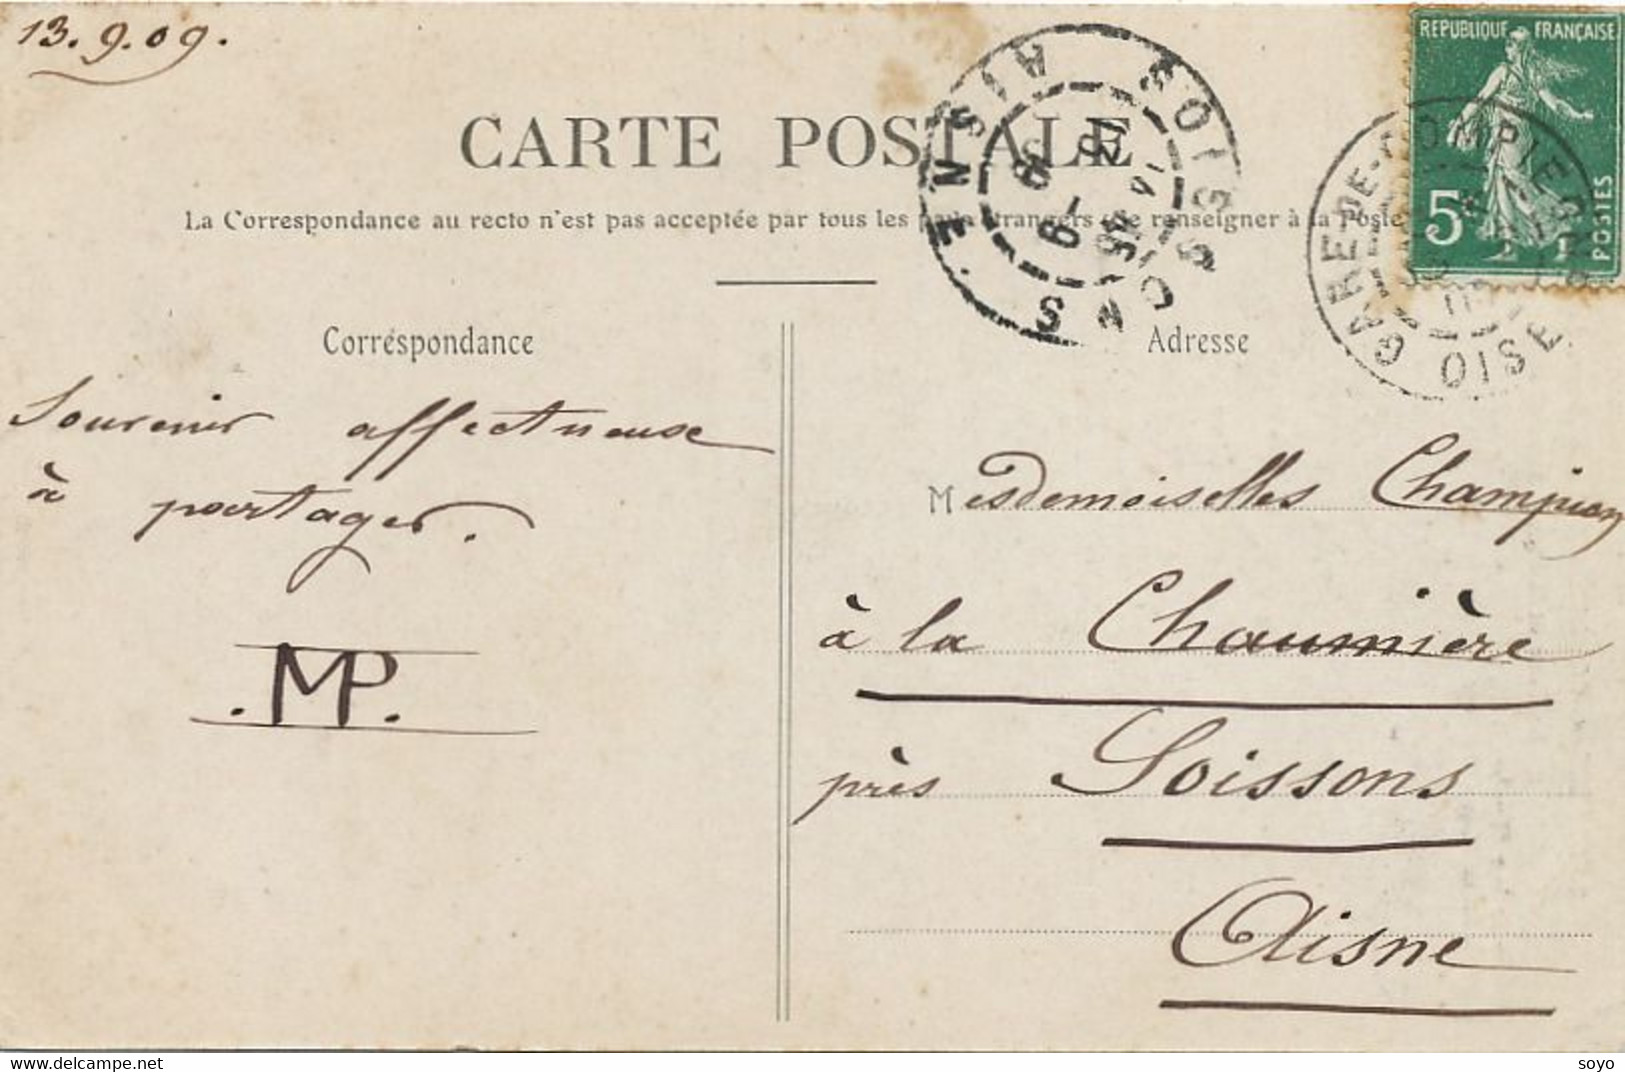 13.9.09.
REPUBLIQUE FRANÇAISE
POSTES
5c
CARTE POSTALE
La Correspondance au recto n'est pas acceptée par tous les pays étrangers (se renseigner à la Poste
SOISSONS
AISNE
GARE-DE-COMPIEGNE
OISE
Correspondance
Souvenir affectueuse
à partager.
.MP.
Adresse
Mesdemoiselles Champion
à la Chaumière
près Soissons
Aisne
soyo